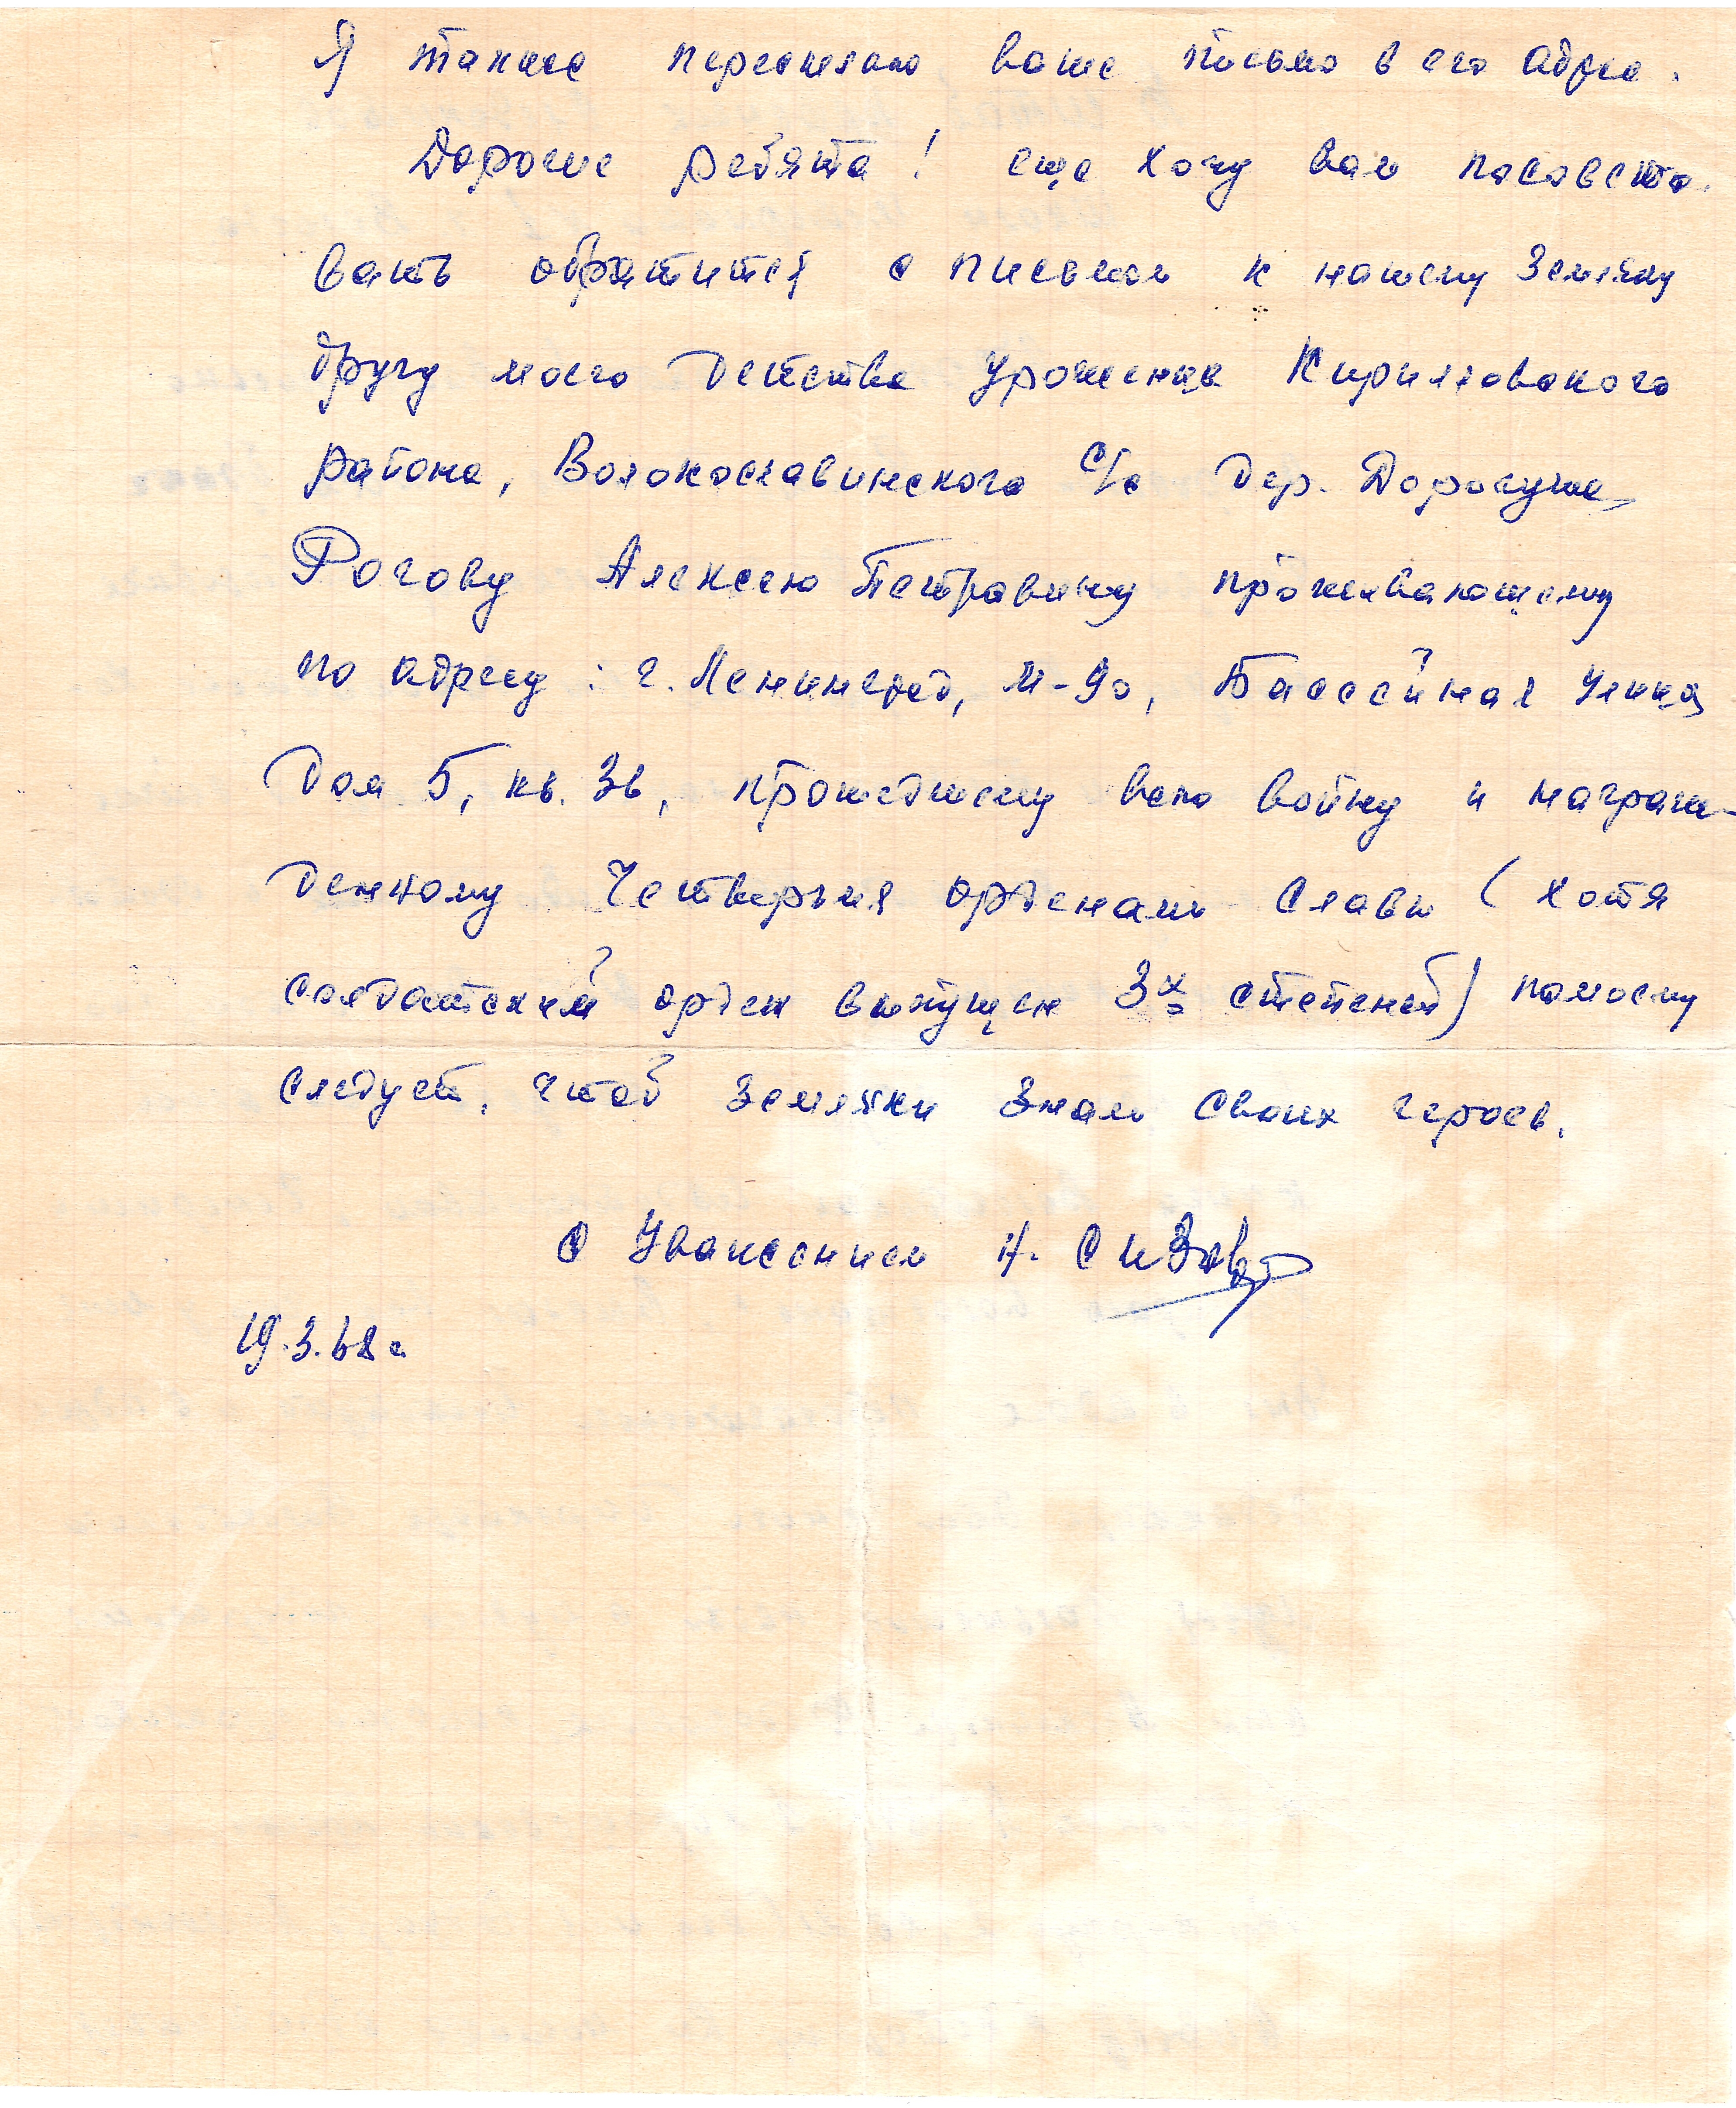 Я также пересылаю ваше письмо в его адрес.
Дорогие ребята! еще хочу вам посовето-
вать обратится с письмом к нашему земляку
другу моего детства уроженца Кирилловского
района, Волокославинского с/с дер. Дорогуша
Рогову Алексею Петровичу проживающему
по адресу: г. Ленинград, М-90, Бассейная улица
дом 5, кв. 36, прошедшему всю войну и награж-
денному Четверьмя орденами Славы (хотя
солдатский орден выпущен 3х степеней) помоему
следует, чтоб земляки знали своих героев.
С Уважением Н. Сизов
19.3.68 г.